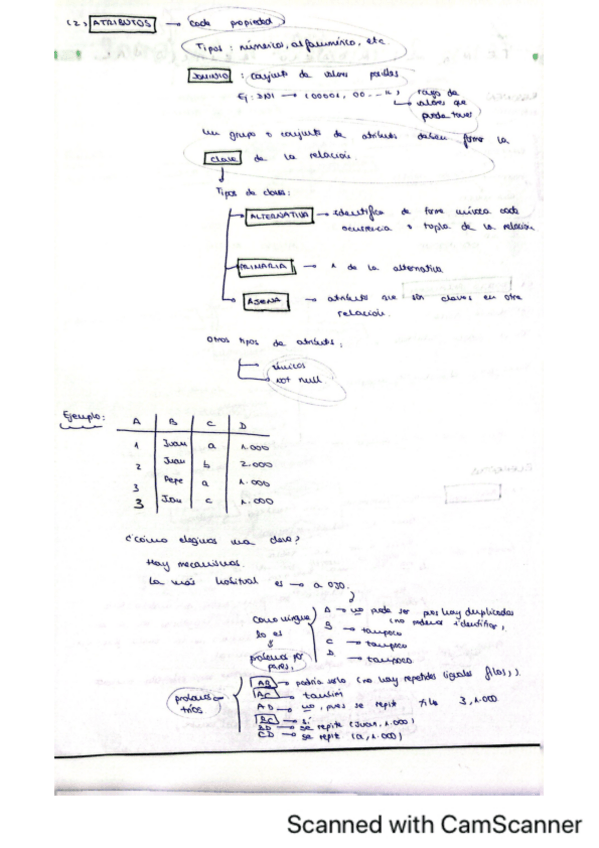 (2) ATRIBUTOS → cada propiedad
Tipos: numéricos, alfanumérico, etc.
DOMINIO : conjunto de valores posibles
Ej: DNI → (00001, 00...) rango de
valores que
puede tener
Un grupo o conjunto de atributos deben formar la
clave de la relación.
Tipos de claves:
ALTERNATIVA → identifica de forma unívoca cada
ocurrencia o tupla de la relación
PRIMARIA → 1 de la alternativa
AJENA → atributos que son claves en otra
relación.
Otros tipos de atributos:
únicos
not null.
Ejemplo:
A B C D
1 Juan a 1.000
2 Juan b 2.000
3 Pepe a 1.000
3 Juan c 1.000
¿Cómo elegimos una clave?
Hay mecanismos.
La más habitual es → a ojo.
Como ninguno
lo es
probamos por
pares,
A → no puede ser pues hay duplicados
B → tampoco
C → tampoco
D → tampoco.
probamos
tríos
AB → podría serlo (no hay repetidos iguales filas,).
AC → también
AD → no, pues se repite fila 3, 1.000
BC → sí
BD → se repite (Juan, 1.000)
CD → se repite (a, 1.000)
Scanned with CamScanner